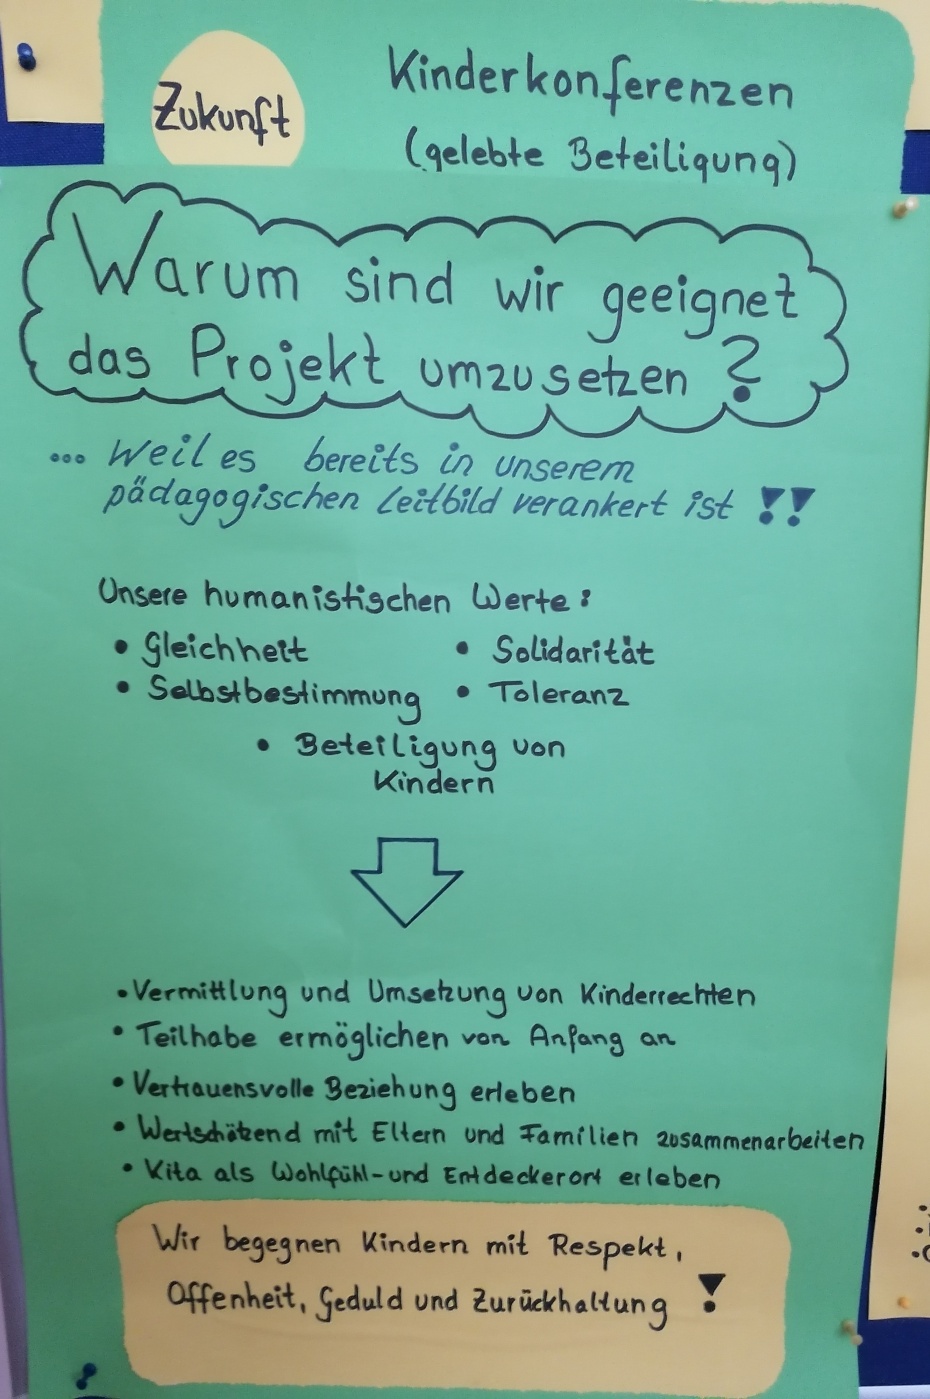 Zukunft
Kinderkonferenzen
(gelebte Beteiligung)
Warum sind wir geeignet
das Projekt umzusetzen?
... weil es bereits in unserem
pädagogischen Leitbild verankert ist !!
Unsere humanistischen Werte:
• Gleichheit • Solidarität
• Selbstbestimmung • Toleranz
• Beteiligung von
Kindern
• Vermittlung und Umsetzung von Kinderrechten
• Teilhabe ermöglichen von Anfang an
• Vertrauensvolle Beziehung erleben
• Wertschätzend mit Eltern und Familien zusammenarbeiten
• Kita als Wohlfühl- und Entdeckerort erleben
Wir begegnen Kindern mit Respekt,
Offenheit, Geduld und Zurückhaltung !